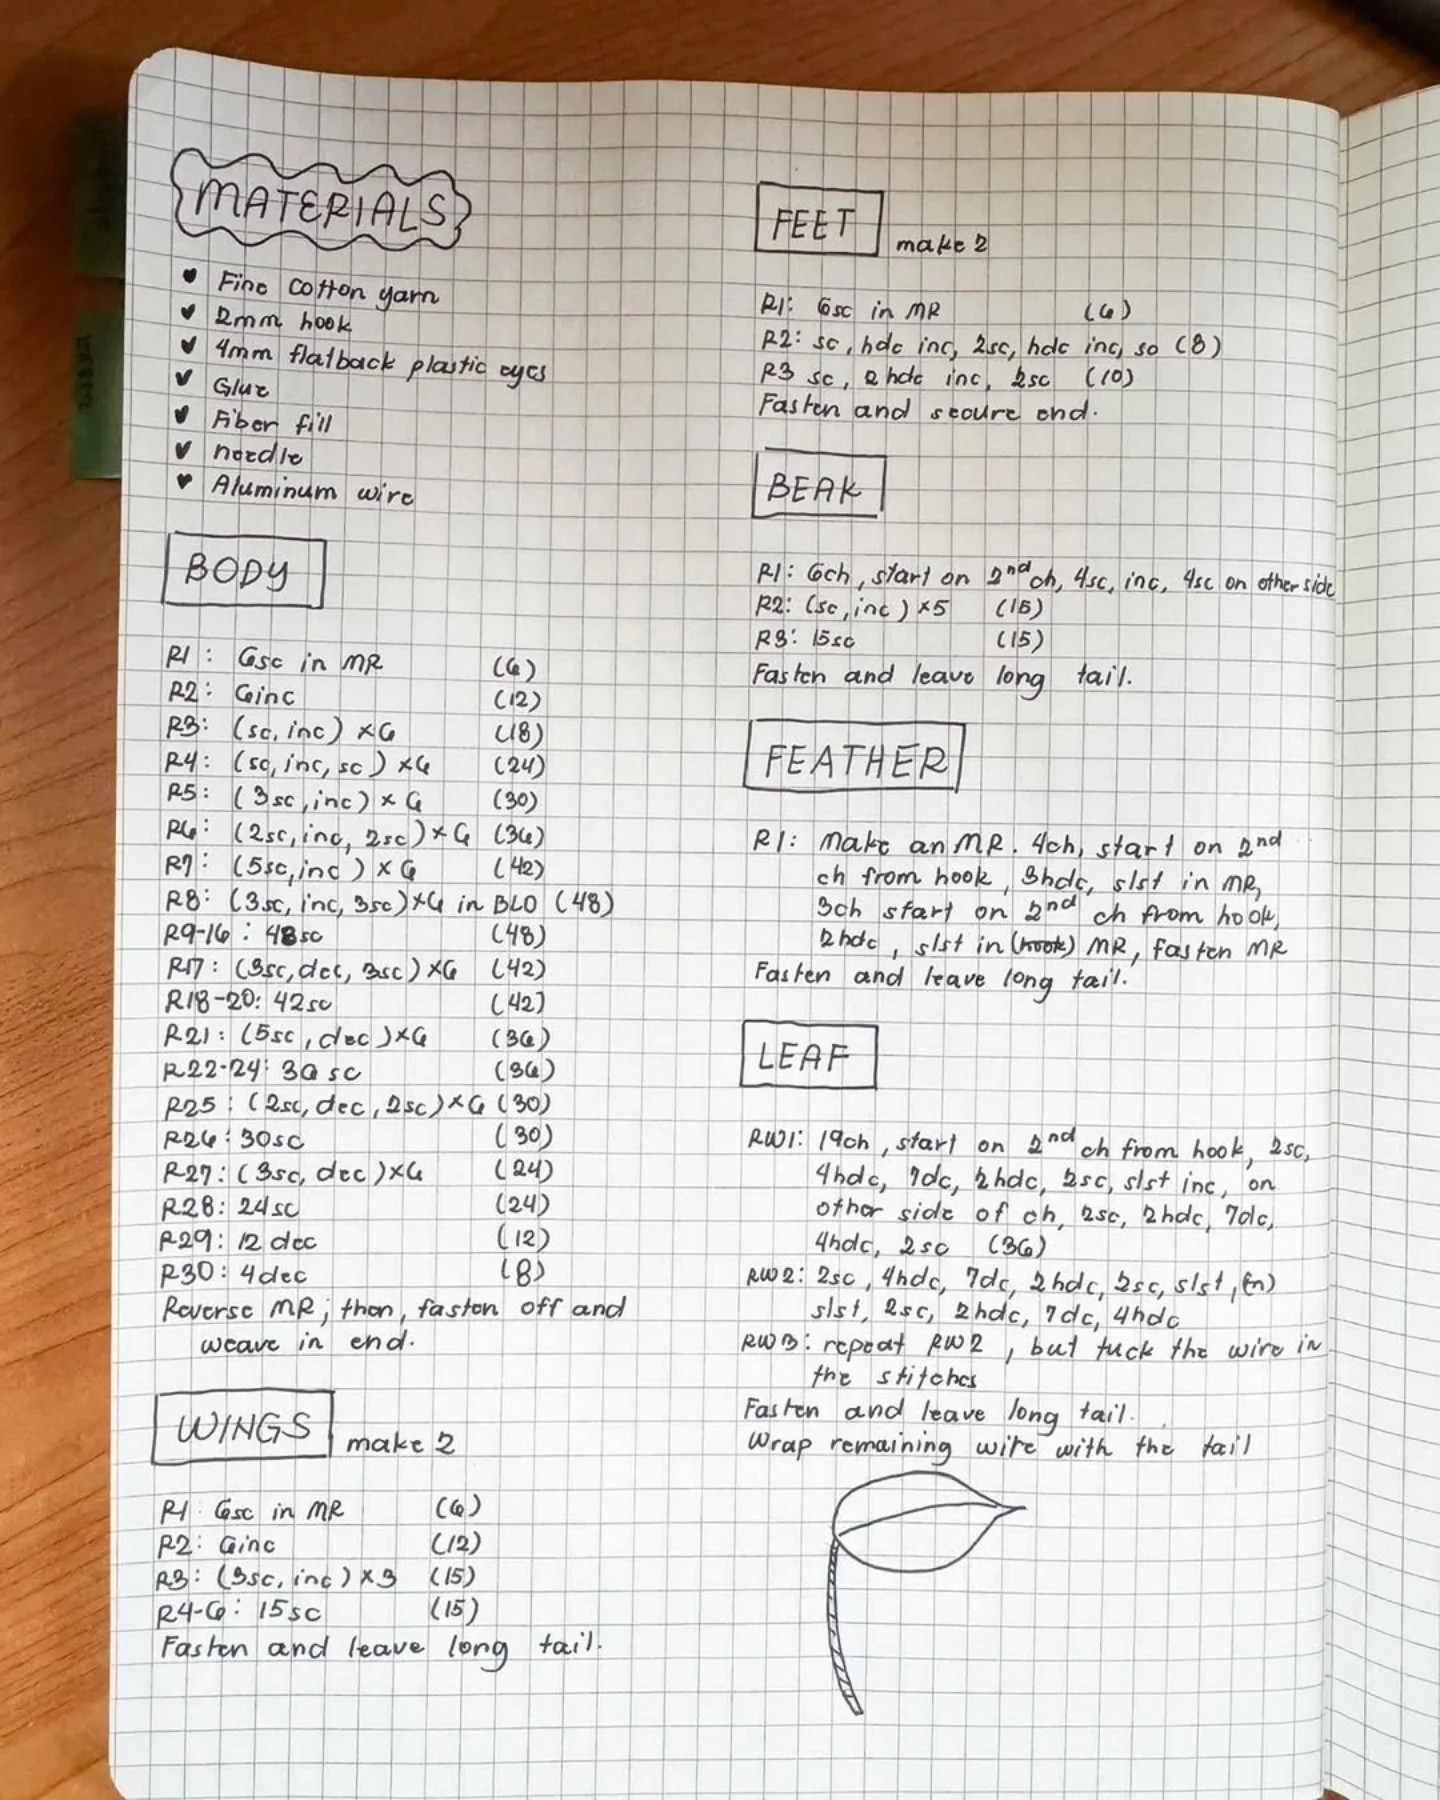 MATERIALS
Fine cotton yarn
2mm hook
4mm flatback plastic eyes
Glue
Fiber fill
needle
Aluminum wire
BODY
R1: 6sc in MR (6)
R2: 6inc (12)
R3: (sc, inc) x6 (18)
R4: (sc, inc, sc) x6 (24)
R5: (3sc, inc) x 6 (30)
R6: (2sc, inc, 2sc) x 6 (36)
R7: (5sc, inc) x 6 (42)
R8: (3sc, inc, 3sc) x6 in BLO (48)
R9-16: 48sc (48)
R17: (3sc, dec, 3sc) x6 (42)
R18-20: 42sc (42)
R21: (5sc, dec) x6 (36)
R22-24: 36 sc (36)
R25: (2sc, dec, 2sc) x6 (30)
R26: 30sc (30)
R27: (3sc, dec) x6 (24)
R28: 24sc (24)
R29: 12 dec (12)
R30: 4dec (8)
Reverse MR; then, fasten off and
weave in end.
WINGS make 2
R1 6sc in MR (6)
R2: 6inc (12)
R3: (3sc, inc) x3 (15)
R4-6: 15sc (15)
Fasten and leave long tail.
FEET make 2
R1: 6sc in MR (6)
R2: sc, hdc inc, 2sc, hdc inc, sc (8)
R3 sc, 2 hdc inc, 2sc (10)
Fasten and secure end.
BEAK
R1: 6ch, start on 2nd ch, 4sc, inc, 4sc on other side
R2: (sc, inc) x5 (15)
R3: 15sc (15)
Fasten and leave long tail.
FEATHER
R1: Make an MR. 4ch, start on 2nd
ch from hook, 3hdc, slst in MR,
3ch start on 2nd ch from hook,
2hdc, slst in (hook) MR, fasten MR
Fasten and leave long tail.
LEAF
RW1: 19ch, start on 2nd ch from hook, 2sc,
4hdc, 7dc, 2hdc, 2sc, slst inc, on
other side of ch, 2sc, 2hdc, 7dc,
4hdc, 2sc (36)
RW2: 2sc, 4hdc, 7dc, 2hdc, 2sc, slst,
slst, 2sc, 2hdc, 7dc, 4hdc
RW3: repeat RW2, but tuck the wire in
the stitches
Fasten and leave long tail.
Wrap remaining wire with the tail